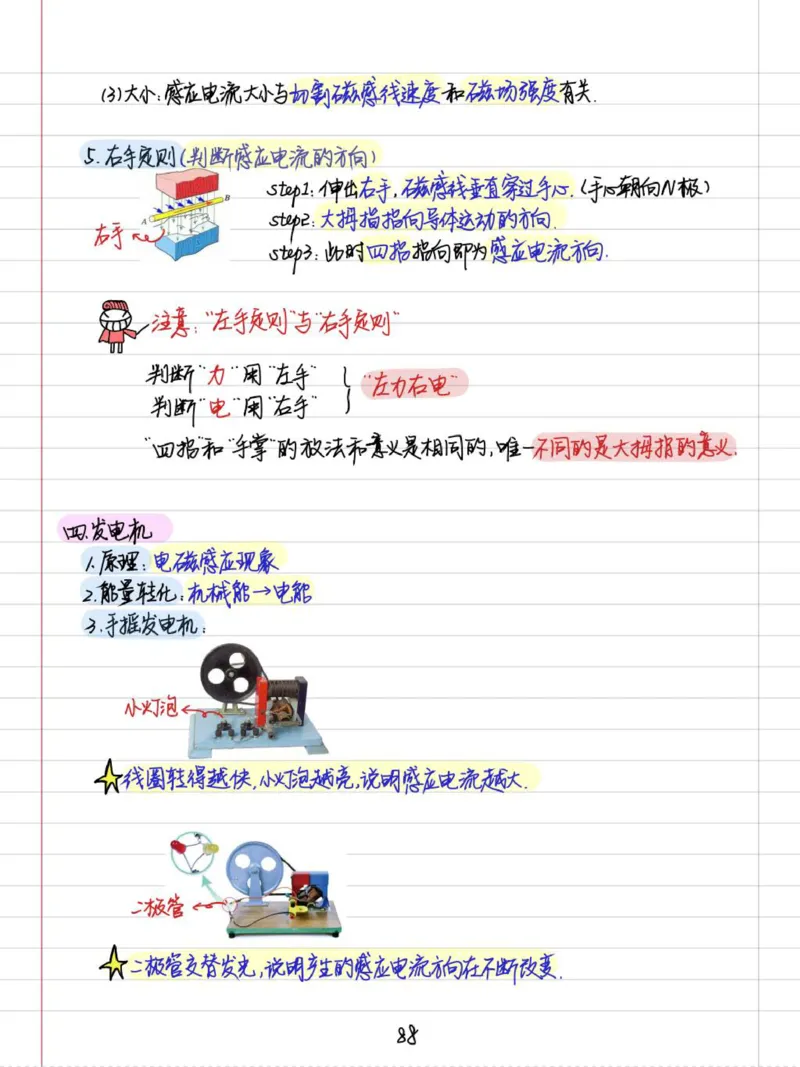 (3)大小:感应电流大小与切割磁感线速度和磁场强度有关.
5.右手定则(判断感应电流的方向)
step1:伸出右手,磁感线垂直穿过手心.(手心朝向N极)
step2:大拇指指向导体运动的方向.
step3:此时四指指向即为感应电流方向.
A
B
右手
注意:"左手定则"与"右手定则"
判断"力"用"左手"
判断"电"用"右手"
"左力右电"
"四指"和"手掌"的放法和意义是相同的,唯一不同的是大拇指的意义.
四.发电机
1.原理:电磁感应现象
2.能量转化:机械能→电能
3.手摇发电机:
小灯泡
线圈转得越快,小灯泡越亮,说明感应电流越大.
二极管
二极管交替发光,说明产生的感应电流方向在不断改变.
88